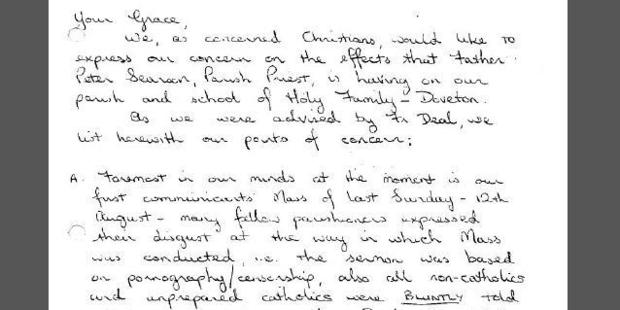 Your Grace,
We, as concerned Christians, would like to
express our concern on the effects that Father
Peter Searson, Parish Priest, is having on our
parish and school of Holy Family - Doveton.
As we were advised by Fr Deal, we
list herewith our points of concern;
A. Foremost in our minds at the moment is our
first communicants Mass of last Sunday - 12th
August - many fellow parishioners expressed
their disgust at the way in which Mass
was conducted, i.e. the sermon was based
on pornography/censorship, also all non-catholics
and unprepared catholics were BLUNTLY told